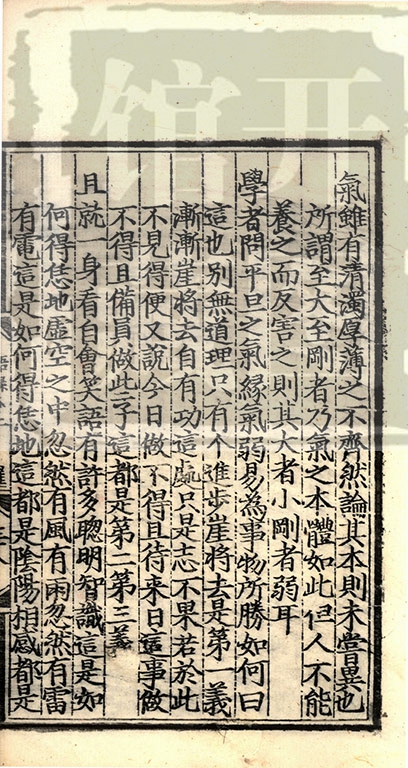 氣雖有清濁厚薄之不齊然論其本則未嘗異也
所謂至大至剛者乃氣之本體如此但人不能
養之而反害之則其大者小剛者弱耳
學者問平旦之氣緣氣弱易為事物所勝如何曰
這也別無道理只有个進步崖將去是第一義
漸漸崖將去自有功這處只是志不果若於此
不見得便又說今日做不得且待来日這事做
不得且備員做此子這都是第二第三義
且就一身看自會笑語有許多聰明智識這是如
何得恁地虛空之中忽然有風有雨忽然有雷
有電這是如何得恁地這都是陰陽相感都是